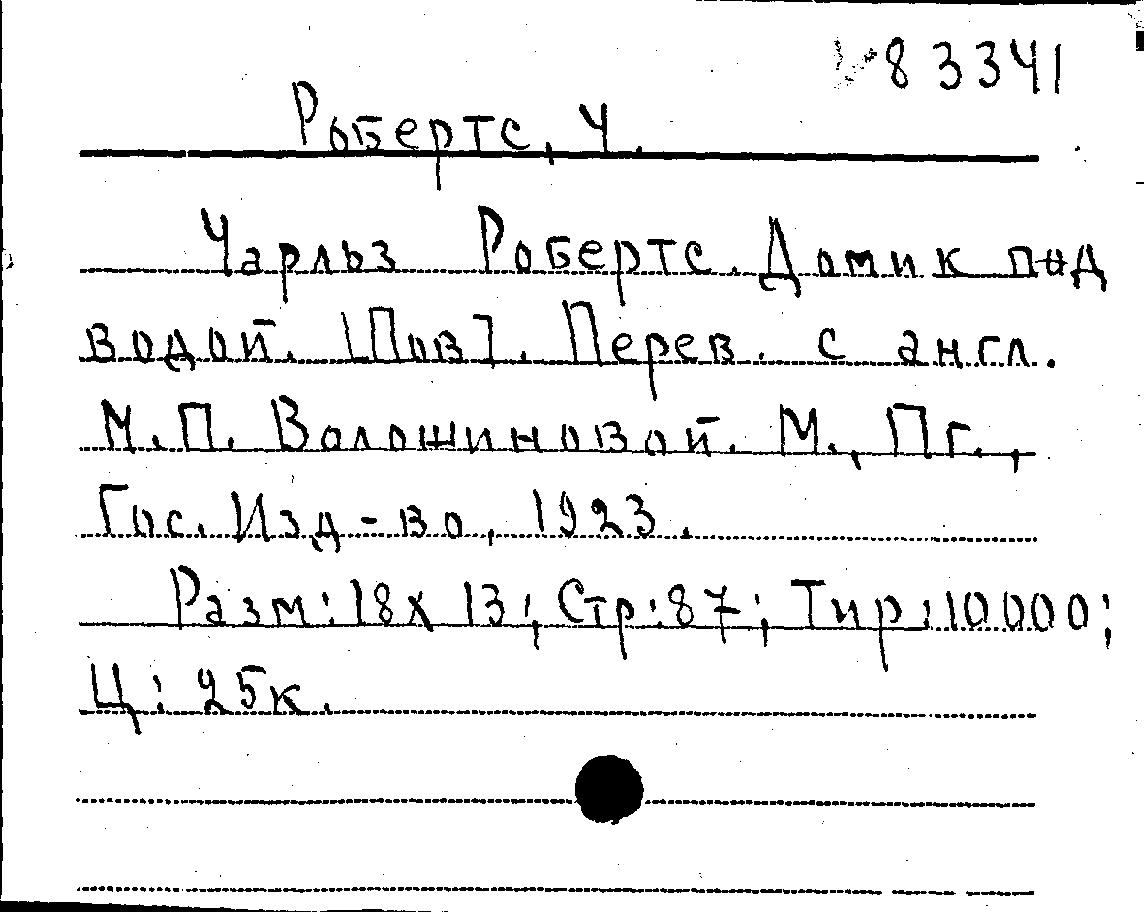 83341
Робертс, Ч.
Чарльз Робертс. Домик под
водой. [Пов]. Перев. с англ.
М.П. Волошиновой. М., Пг.,
Гос. Изд-во, 1923.
Разм: 18х13; Стр: 87; Тир: 10000;
Ц: 25к.